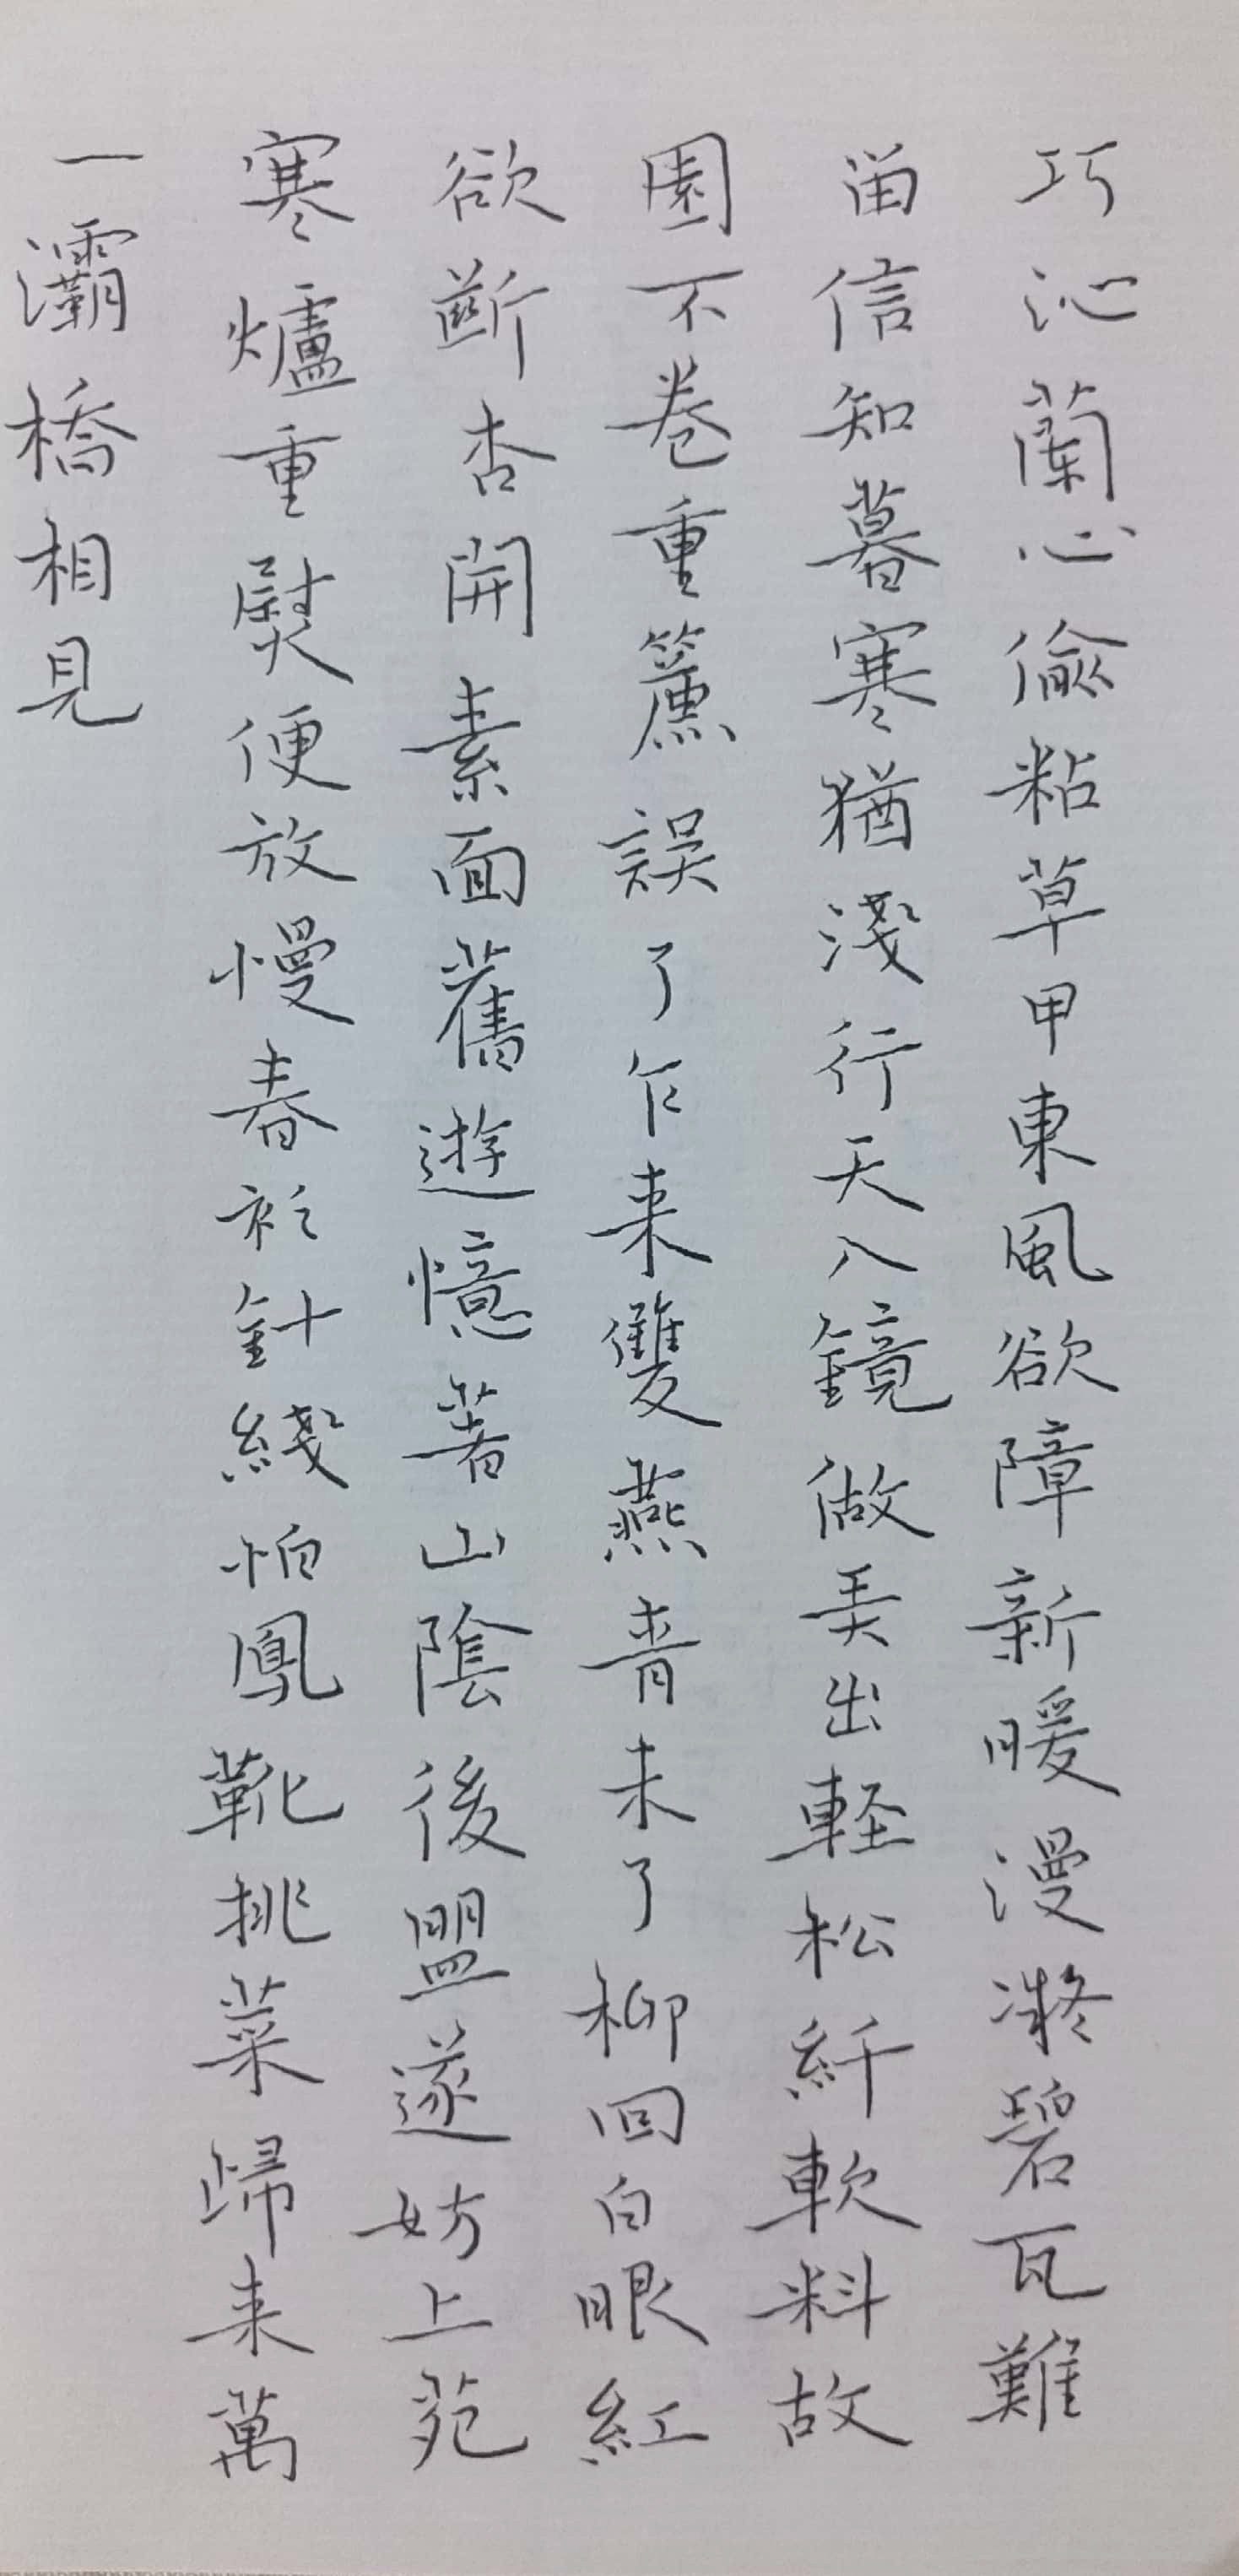 巧沁蘭心偷粘草甲東風欲障新暖漫凝碧瓦難
留信知暮寒猶淺行天入鏡做弄出輕松纖軟料故
園不卷重簾誤了乍来雙燕青未了柳回白眼紅
欲斷杏開素面舊遊憶著山陰後盟遂妨上苑
寒爐重熨便放慢春衫針綫怕鳳靴挑菜歸来萬
一灞橋相見